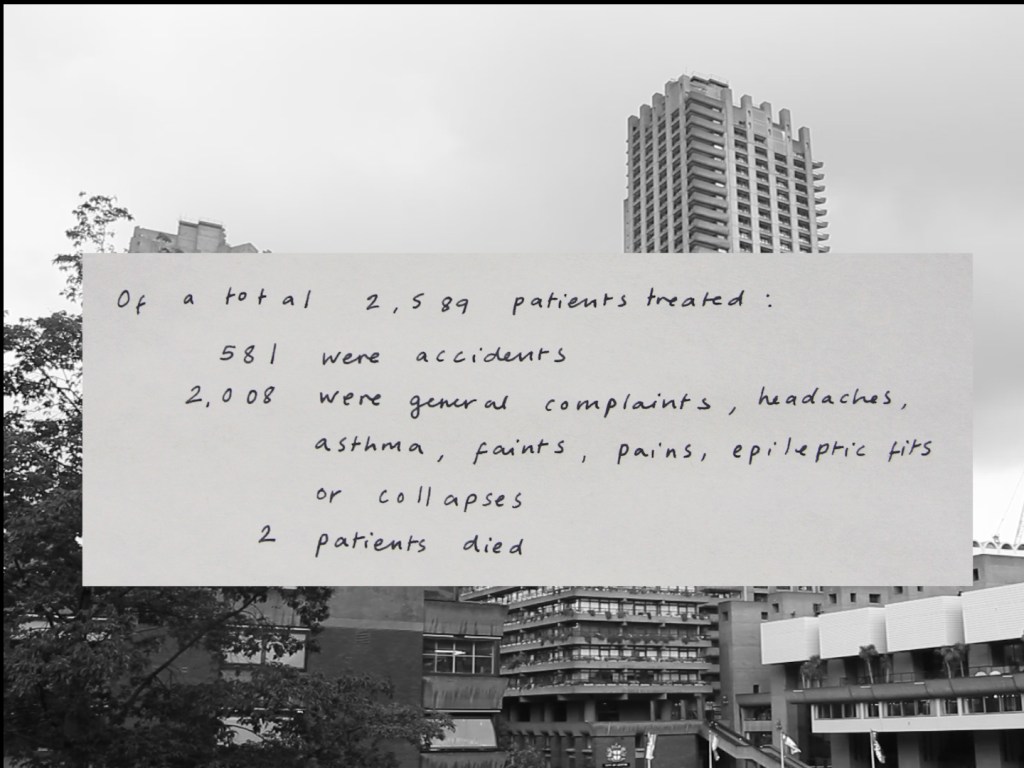 Of a total 2,589 patients treated :
581 were accidents
2,008 were general complaints, headaches,
asthma, faints, pains, epileptic fits
or collapses
2 patients died